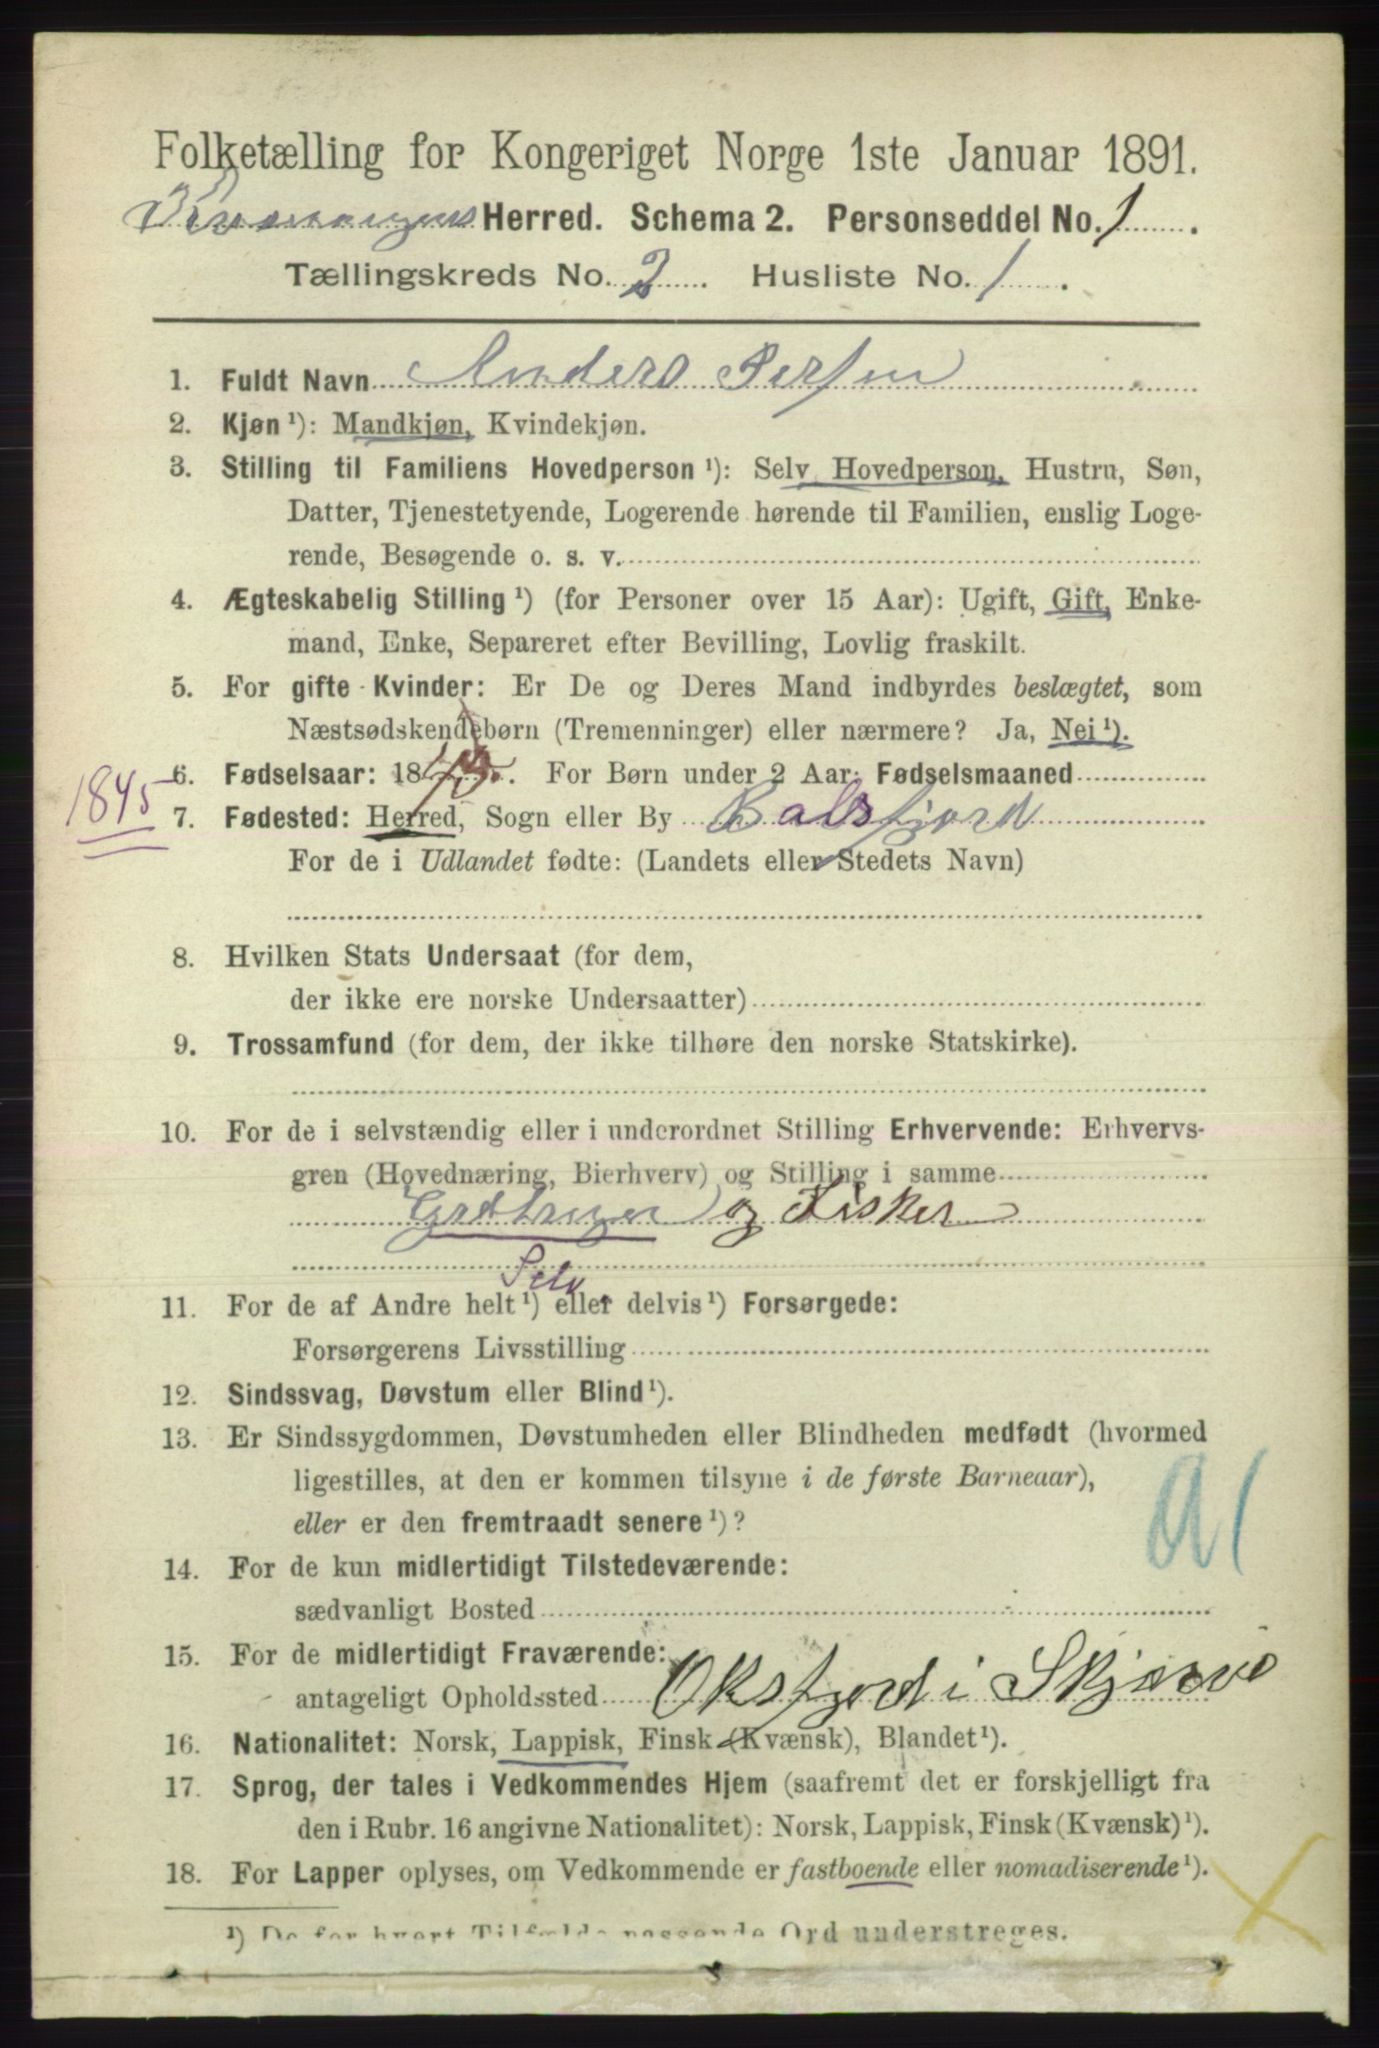 Folketælling for Kongeriget Norge 1ste Januar 1891.
Kvænangens Herred. Schema 2. Personseddel No. 1.
Tællingskreds No. 2. Husliste No. 1.
1. Fuldt Navn Anders Persen
2. Kjøn ¹): Mandkjøn, Kvindekjøn.
3. Stilling til Familiens Hovedperson ¹): Selv Hovedperson, Hustru, Søn,
Datter, Tjenestetyende, Logerende hørende til Familien, enslig Loge-
rende, Besøgende o. s. v.
4. Ægteskabelig Stilling ¹) (for Personer over 15 Aar): Ugift, Gift, Enke-
mand, Enke, Separeret efter Bevilling, Lovlig fraskilt.
5. For gifte Kvinder: Er De og Deres Mand indbyrdes beslægtet, som
Næstsødskendebørn (Tremenninger) eller nærmere? Ja, Nei ¹).
6. Fødselsaar: 1845. For Børn under 2 Aar: Fødselsmaaned
1845
7. Fødested: Herred, Sogn eller By Balsfjord
For de i Udlandet fødte: (Landets eller Stedets Navn)
8. Hvilken Stats Undersaat (for dem,
der ikke ere norske Undersaatter)
9. Trossamfund (for dem, der ikke tilhøre den norske Statskirke).
10. For de i selvstændig eller i underordnet Stilling Erhvervende: Erhvervs-
gren (Hovednæring, Bierhverv) og Stilling i samme
Grdbruger og Fisker
Selv.
11. For de af Andre helt ¹) eller delvis ¹) Forsørgede:
Forsørgerens Livsstilling
12. Sindssvag, Døvstum eller Blind ¹).
13. Er Sindssygdommen, Døvstumheden eller Blindheden medfødt (hvormed
ligestilles, at den er kommen tilsyne i de første Barneaar),
eller er den fremtraadt senere ¹)?
14. For de kun midlertidigt Tilstedeværende:
sædvanligt Bosted
15. For de midlertidigt Fraværende:
antageligt Opholdssted Oksfjord i Skjærvø
16. Nationalitet: Norsk, Lappisk, Finsk (Kvænsk), Blandet ¹).
17. Sprog, der tales i Vedkommendes Hjem (saafremt det er forskjelligt fra
den i Rubr. 16 angivne Nationalitet): Norsk, Lappisk, Finsk (Kvænsk) ¹).
18. For Lapper oplyses, om Vedkommende er fastboende eller nomadiserende ¹).
¹) De for hvert Tilfælde passende Ord understreges.